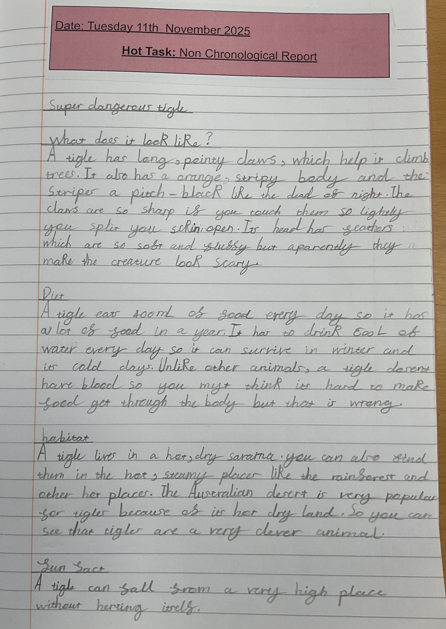 Date: Tuesday 11th November 2025
Hot Task: Non Chronological Report
Super dangerous tigle
What does it look like?
A tigle has long, pointy claws, which help it climb
trees. It also has a orange, stripy body and the
stripes a pitch-black like the dead of night. The
claws are so sharp if you touch them so lightely
you split you skin open. Its head has feathers
which are so soft and fluffy but aparendy they
make the creature look scary.
Diet
A tigle eat 500ml of food every day so it has
a lot of food in a year. It has to drink of
water every day so it can survive in winter and
in cold days. Unlike other animals, a tigle dosent
have blood so you myt think its hard to make
food get through the body but that is wrong.
habitat
A tigle lives in a hot, dry savana. you can also find
them in the hot, steamy places like the rainforest and
other hot places. The Australian desert is very populer
for tigles because of its hot dry land. So you can
see that tigles are a very clever animal.
fun fact
A tigle can fall from a very high place
without herting itself.